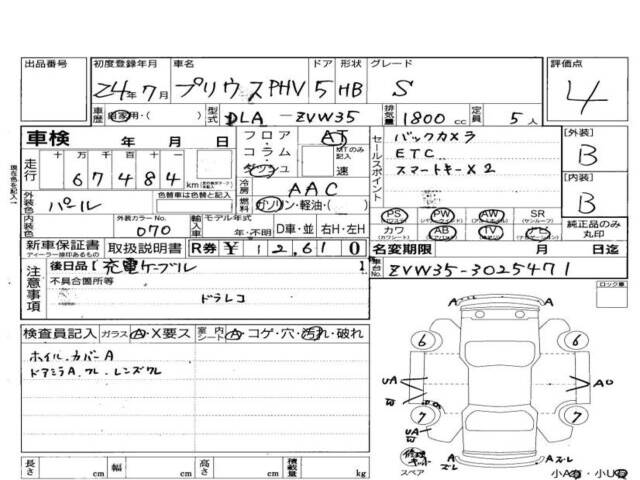 出品番号 初度登録年月 車名 ドア 形状 グレード 評価点
24年7月 プリウスPHV 5 HB S 4
車歴 自家用・( ) 型式 DLA-ZVW35 排気量 1800cc 定員 5人
車検 年 月 日
フロア AT
コラム MTのみ記入
ダッシュ 速
セールスポイント
バックカメラ
ETC
スマートキーX2
[外装]
B
[内装]
B
現在色を記入
走行 十 万 千 百 十
67484 km
冷房 AAC
燃料 ガソリン・軽油・( )
外装色 パール
内装色
外装カラーNo. 070
輸入車 モデル年式 年・不明 D車・並 右H・左H
PS PW AW SR
(パワステ) (サンルーフ)
カワ AB TV
(カワシート) (エアバッグ)
純正品のみ丸印
新車保証書 取扱説明書 R券 ¥12,610
ディーラー捺印あるもの
名変期限 月 日迄
車台No. ZVW35-3025471
注意事項
後日品【充電ケーブル 】
不具合箇所等
ドラレコ
ロック車
検査員記入 ガラス A・X要ス 室内シート A・コゲ・穴・汚れ・破れ
ホイルカバーA
ドアミラA.ワレ.レンズワレ
6 6
UA AU
7 7
UA
修理キット
スペア
Aズレ Aズレ
長さ cm 幅 cm 高さ cm 積載量 kg
小A・小U